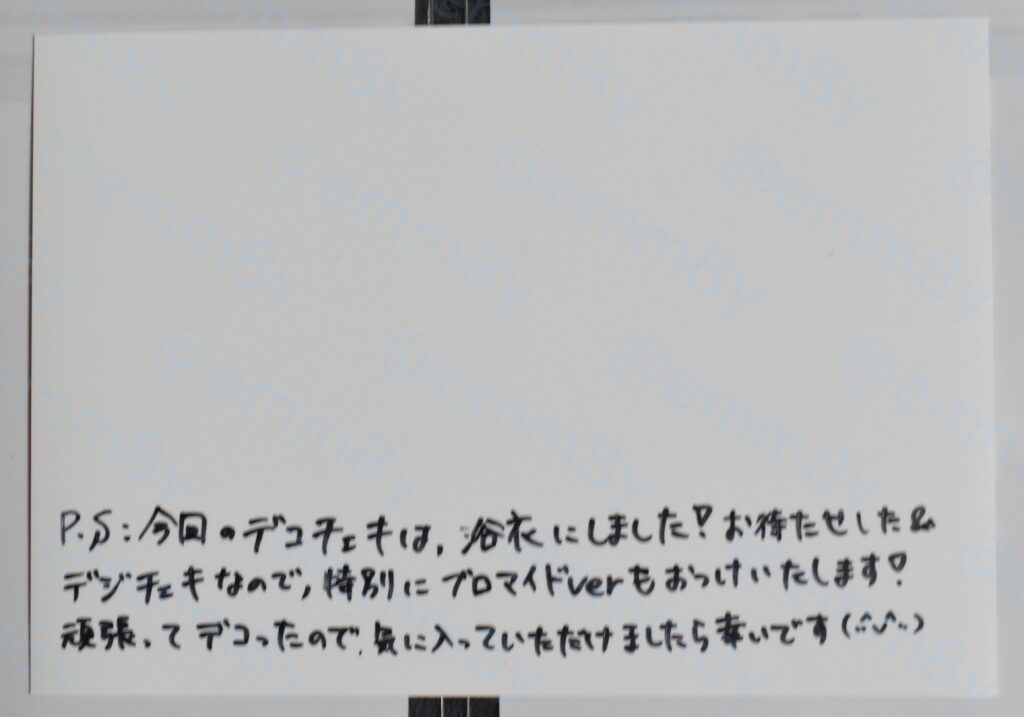 P.S:今回のデコチェキは、浴衣にしました!お待たせした&
デジチェキなので、特別にブロマイドverもおつけいたします!
頑張ってデコったので、気に入っていただけましたら幸いです(*ˊᵕˋ*)
@emm8y